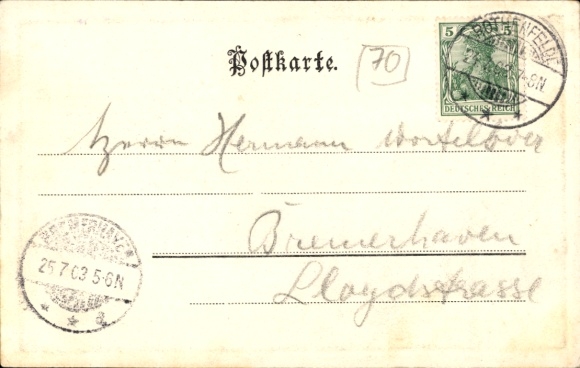 Postkarte.
[70]
5 5
DEUTSCHES REICH
ROTHENFELDE
7-8N
Herrn Hermann
Bremerhaven
Lloydstrasse
BREMERHAVEN
25.7.03 5-6N
* * a